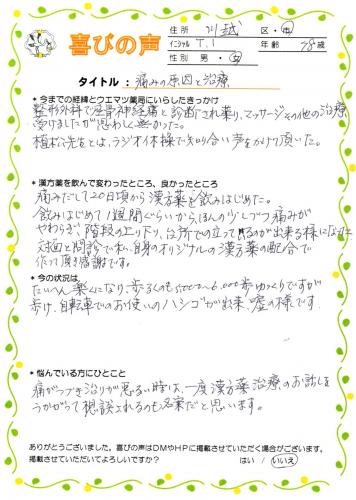 喜びの声
住所 川越 区・市
イニシャル T.I 年齢 78歳
性別 男・女
タイトル : 痛みの原因と治療
* 今までの経緯とウエマツ薬局にいらしたきっかけ
整形外科で座骨神経痛と診断され薬り、マッサージその他の治療
受けましたが思わしく無かった。
植松先生とは、ラジオ体操で知り合い声をかけて頂いた。
* 漢方薬を飲んで変わったところ、良かったところ
痛みだして20日頃から漢方薬を飲みはじめた。
飲みはじめて1週間ぐらいからほんの少しづつ痛みが
やわらぎ、階段の上り下り、台所での立って居るのが出来る様になった。
対面と問診で私自身のオリジナルの漢方薬の配合で
作って頂き感謝です。
* 今の状況は
たいへん楽くになり、歩るくのも5000〜6.000歩ゆっくりですが
歩け、自転車でのお使いのハシゴが出来、嘘の様です。
* 悩んでいる方にひとこと
痛がつづき治りが悪るい時は、一度漢方薬治療のお話しを
うかがって相談されるのも名案だと思います。
ありがとうございました。喜びの声はDMやHPに掲載させていただく場合がございます。
掲載させていただいてよろしいですか? はい / いいえ